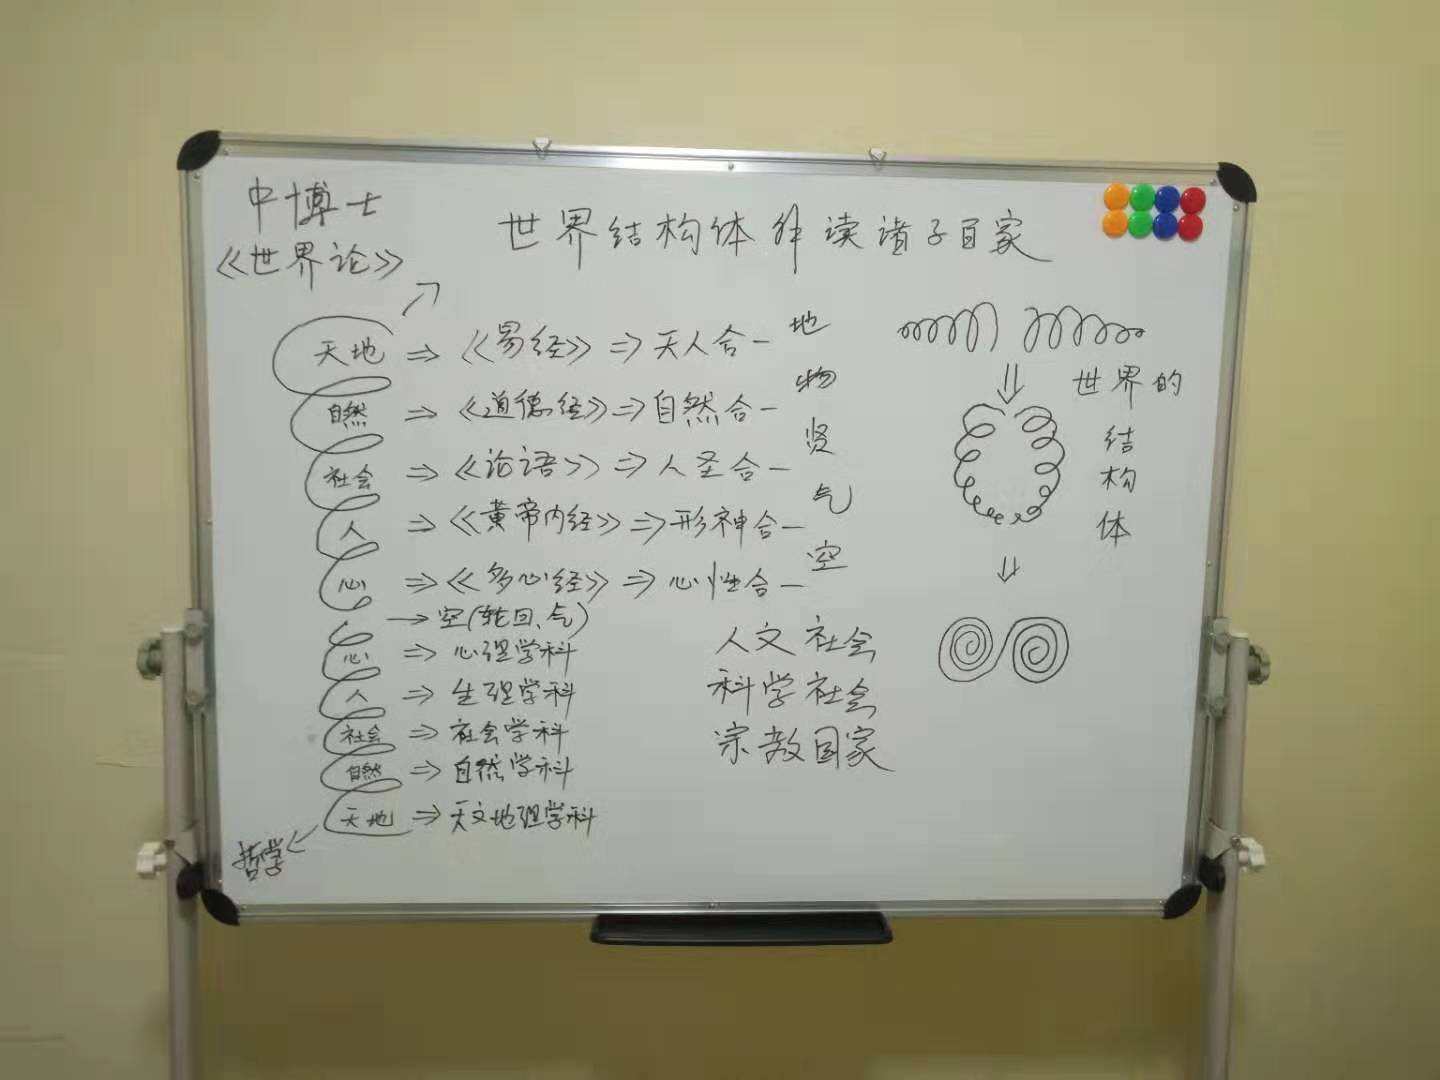 中博士
《世界论》
世界结构体解读诸子百家
天地 ⇒ 《易经》 ⇒ 天人合一 地
自然 ⇒ 《道德经》 ⇒ 自然合一 物
社会 ⇒ 《论语》 ⇒ 人圣合一 贤
人 ⇒ 《黄帝内经》 ⇒ 形神合一 气
心 ⇒ 《多心经》 ⇒ 心性合一 空
→ 空(轮回、气)
心 ⇒ 心理学科
人 ⇒ 生理学科
社会 ⇒ 社会学科
自然 ⇒ 自然学科
天地 ⇒ 天文地理学科
哲学
人文社会
科学社会
宗教国家
世界的
结
构
体